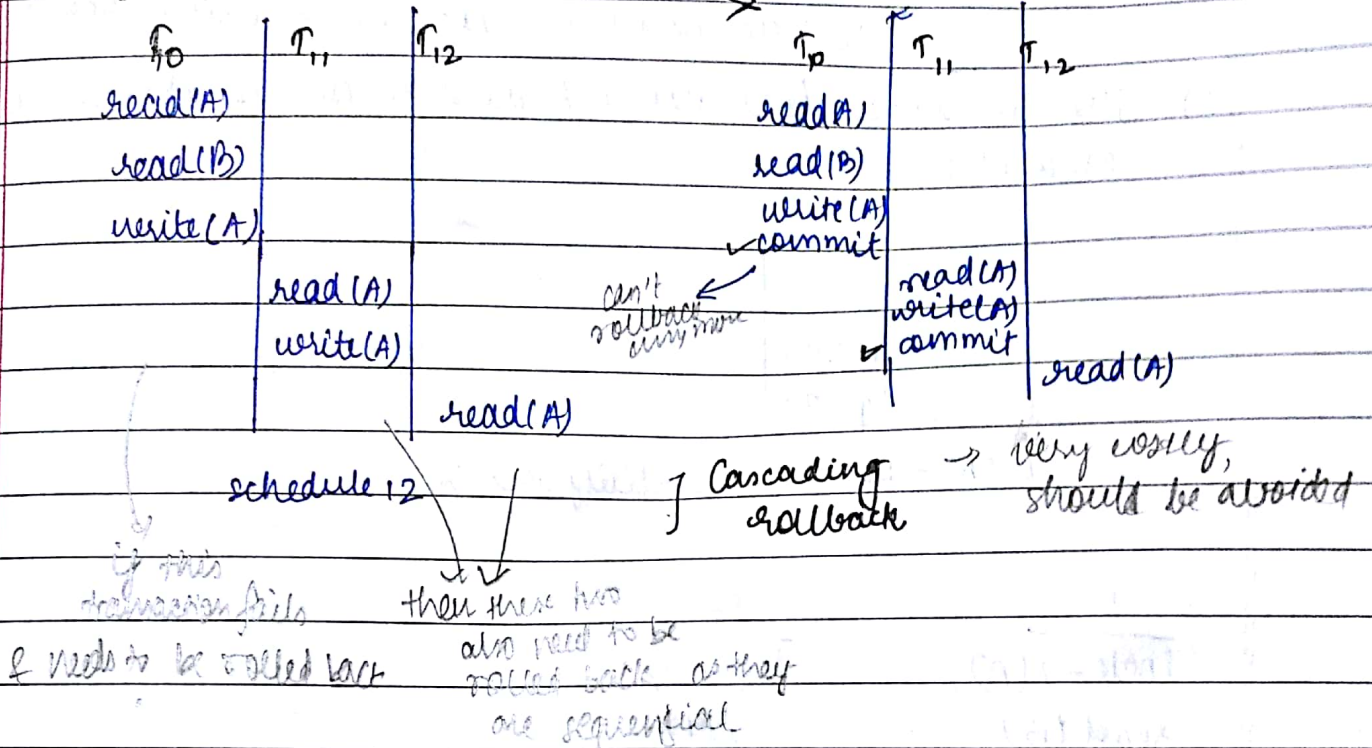 T10 T11 T12
read(A)
read(B)
write(A)
read(A)
write(A)
read(A)
schedule 12
T10 T11 T12
read(A)
read(B)
write(A)
commit
can't
rollback
anymore
read(A)
write(A)
commit
read(A)
] Cascading
rollback
→ very costly,
should be avoided
if this
transaction fails
& needs to be rolled back
then these two
also need to be
rolled back as they
are sequential